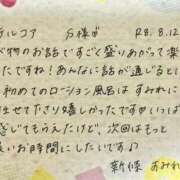 テルコア S様♂ R8.8.12
べ物のお話ですごく盛りあがって楽
たですね！あんなに話が通じると
初めてのローション風呂はすみれに
せて下さり嬉しかったですがいっぱ
してもらえたけど、次回はもっと
いお時間にしたいです♪
新妻 すみれ